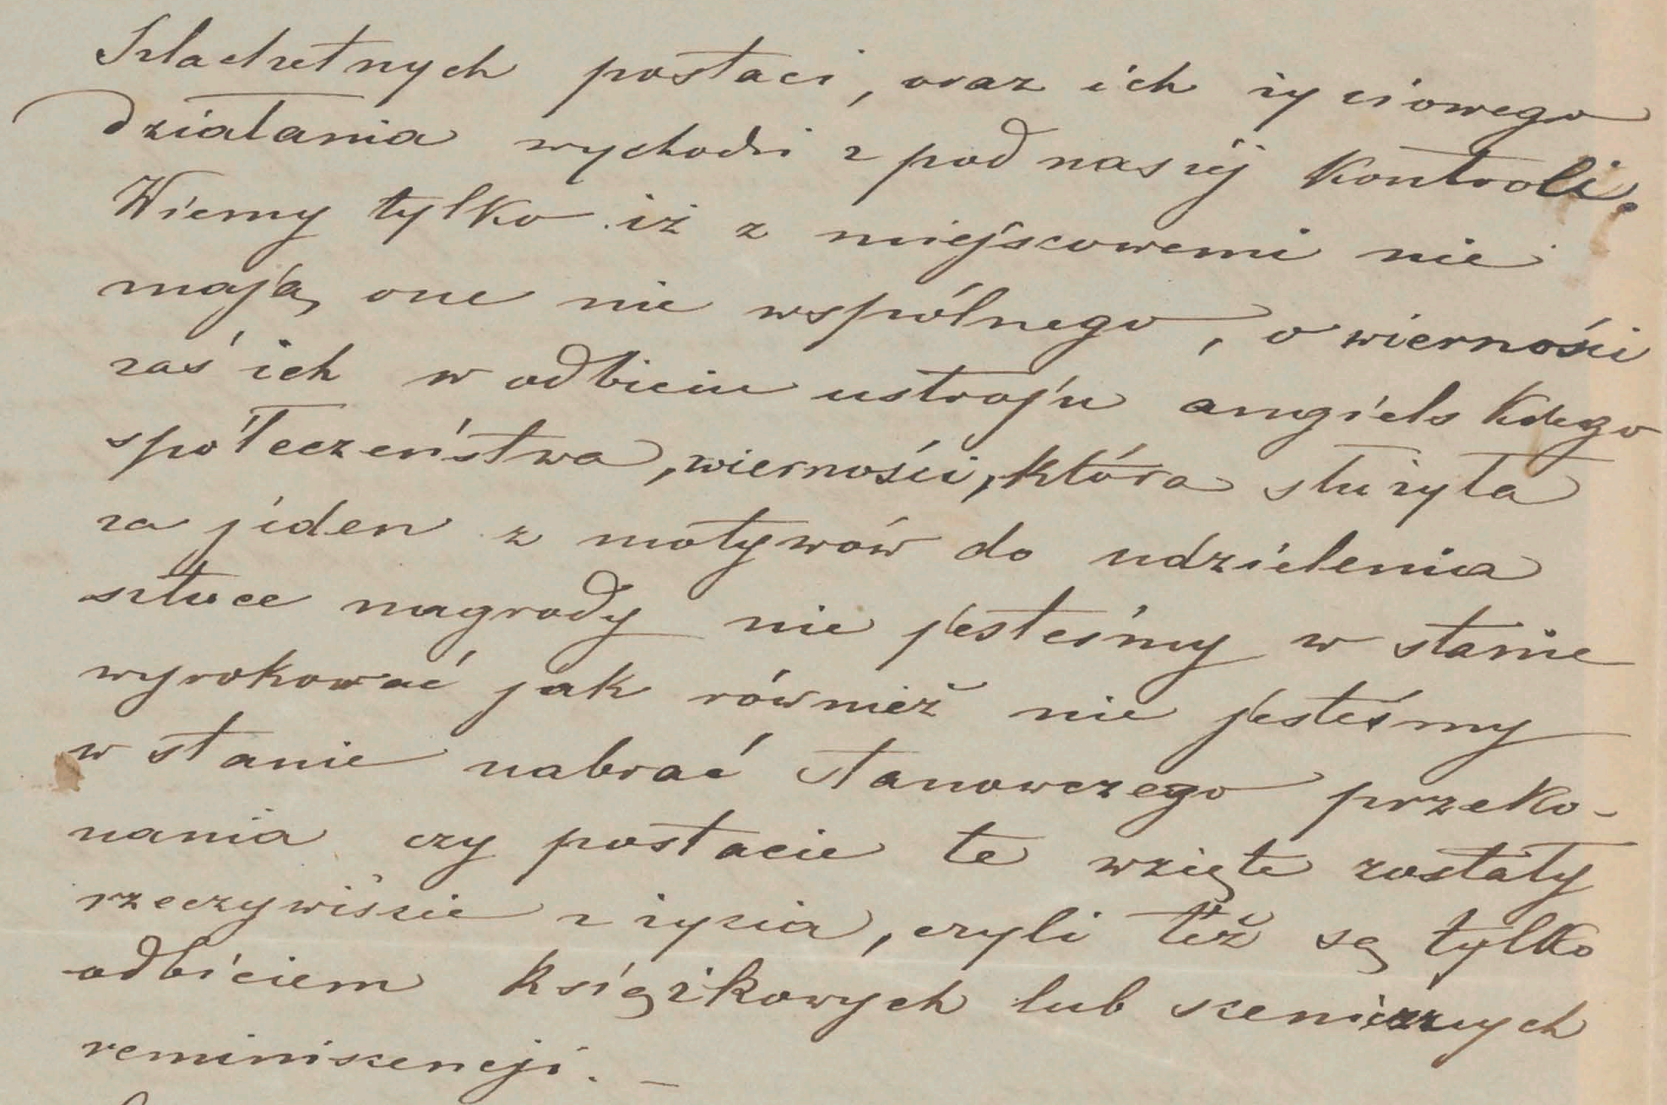 Szlachetnych postaci, oraz ich życiowego
działania wychodzi z pod naszéj kontroli.
Wiemy tylko iż z miejscowemi nie
mają one nic wspólnego, o wierności
zaś ich w odbiciu ustroju angielskiego
spółeczeństwa, wierności, która służyła
za jeden z motywów do udzielenia
sztuce nagrody nie jesteśmy w stanie
wyrokować jak również nie jesteśmy
w stanie nabrać stanowczego przeko-
nania czy postacie te wzięte zostały
rzeczywiście z życia, czyli też są tylko
odbiciem książkowych lub scenicznych
reminiscencji. —